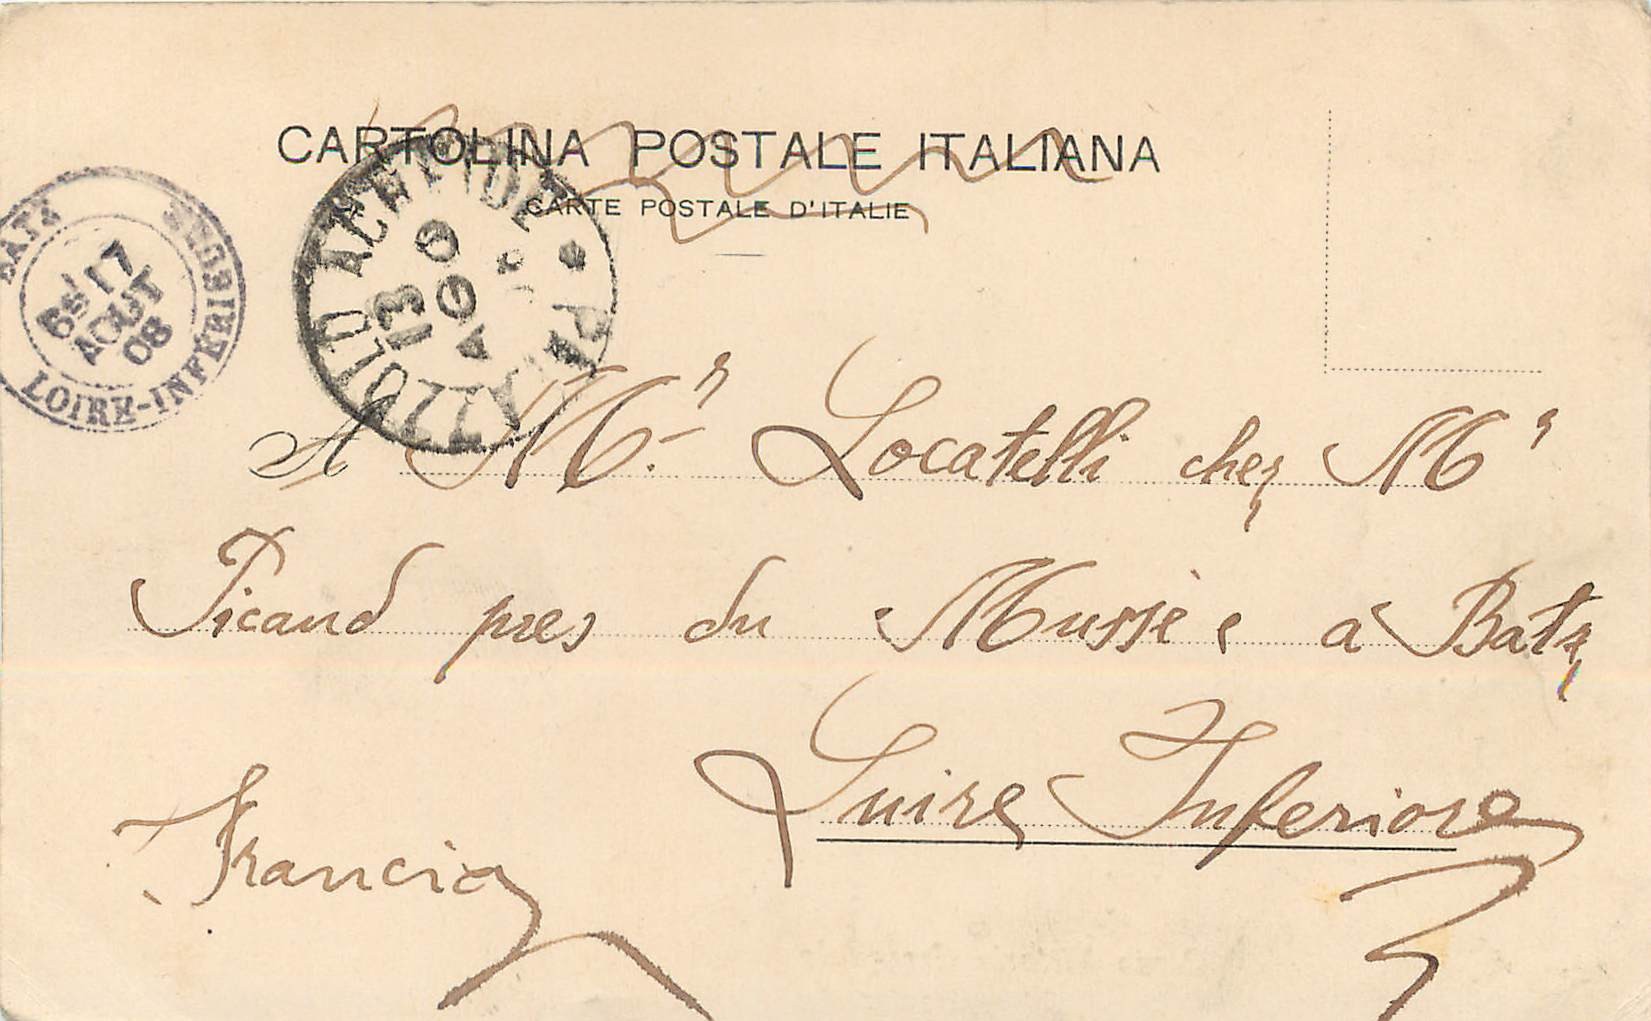 CARTOLINA POSTALE ITALIANA
CARTE POSTALE D'ITALIE
BATZ
6E/17
AOUT
08
LOIRE-INFÉRIEURE
13
AGO
A Mr. Locatelli chez Mr
Picand pres du Mussèe a Batz
Luire Inferiore
Francia